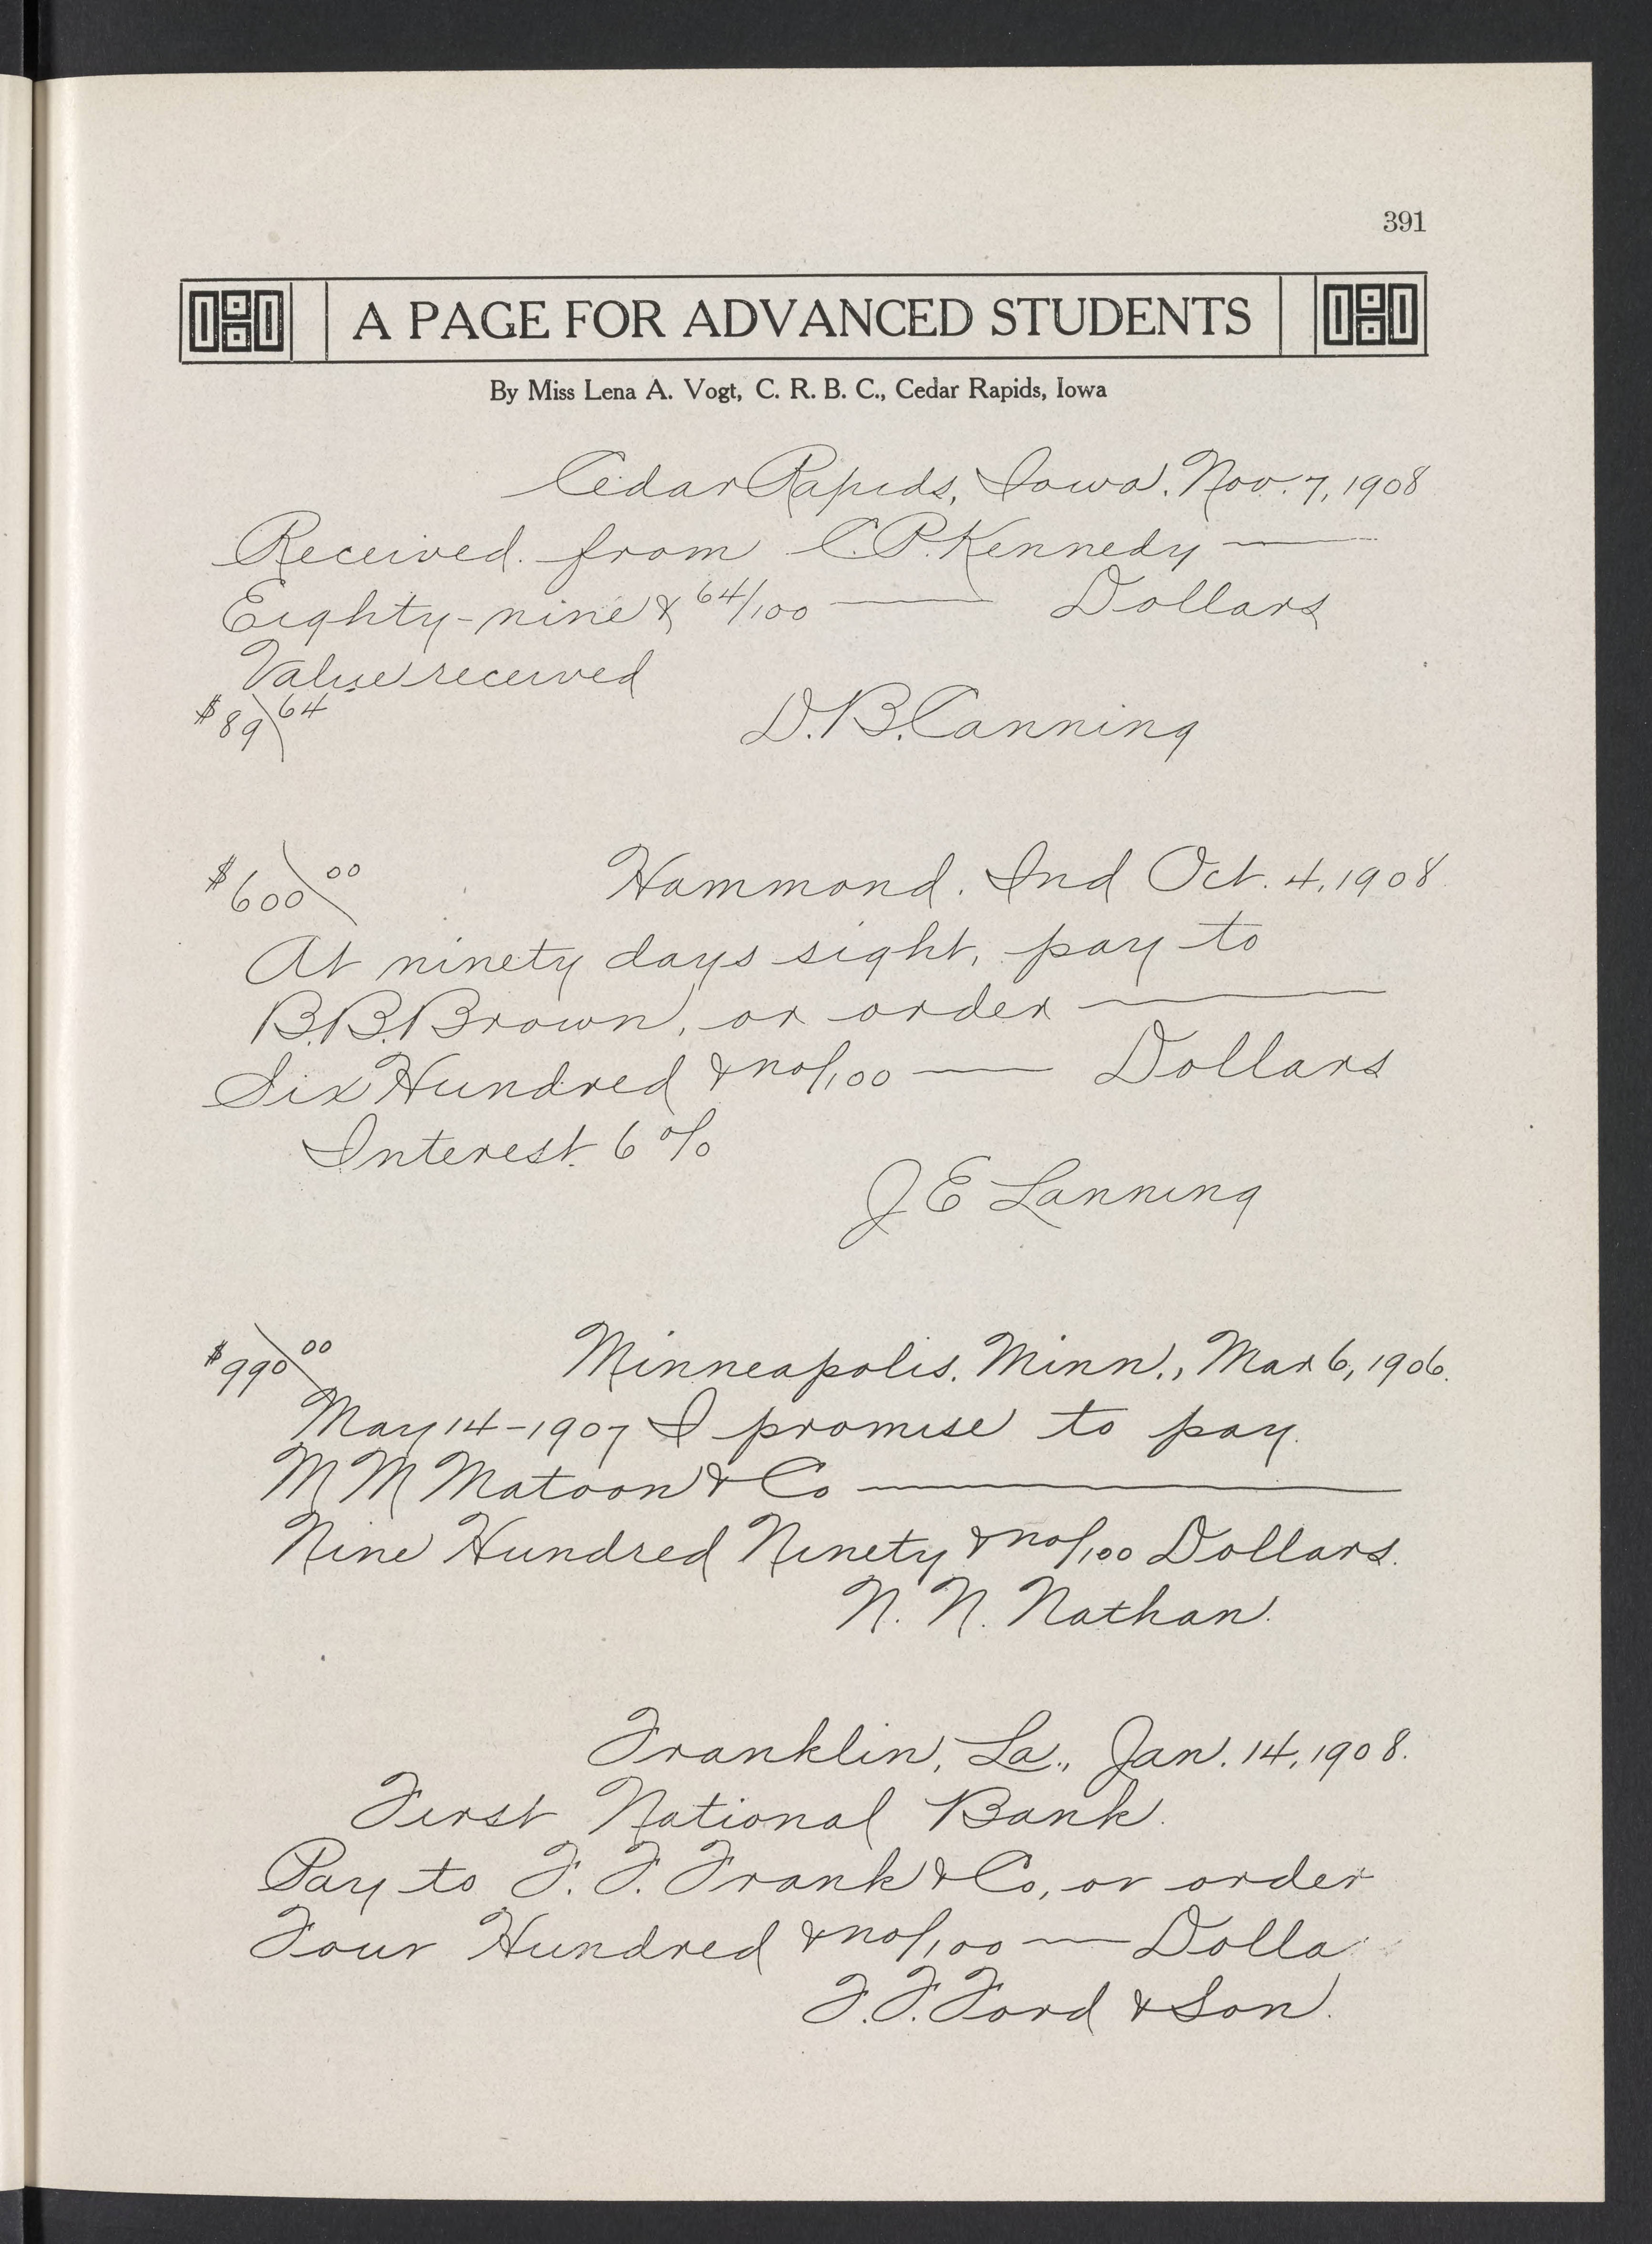 391
A PAGE FOR ADVANCED STUDENTS
By Miss Lena A. Vogt, C. R. B. C., Cedar Rapids, Iowa
Cedar Rapids, Iowa. Nov. 7, 1908
Received. from C.P. Kennedy —
Eighty-nine & 64/100 — Dollars
Value received
$89 64
D.B. Canning
$600 00 Hammond. Ind Oct. 4, 1908
At ninety days sight, pay to
B.B. Brown, or order —
Six Hundred & no/100 — Dollars
Interest 6%
J E Lanning
$990 00 Minneapolis. Minn., Mar 6, 1906.
May 14-1907 I promise to pay.
M M Matoon & Co —
Nine Hundred Ninety & no/100 Dollars.
N. N. Nathan.
Franklin, La., Jan. 14, 1908.
First National Bank.
Pay to F. F. Frank & Co, or order
Four Hundred & no/100 — Dolla
F. F. Ford & Son.